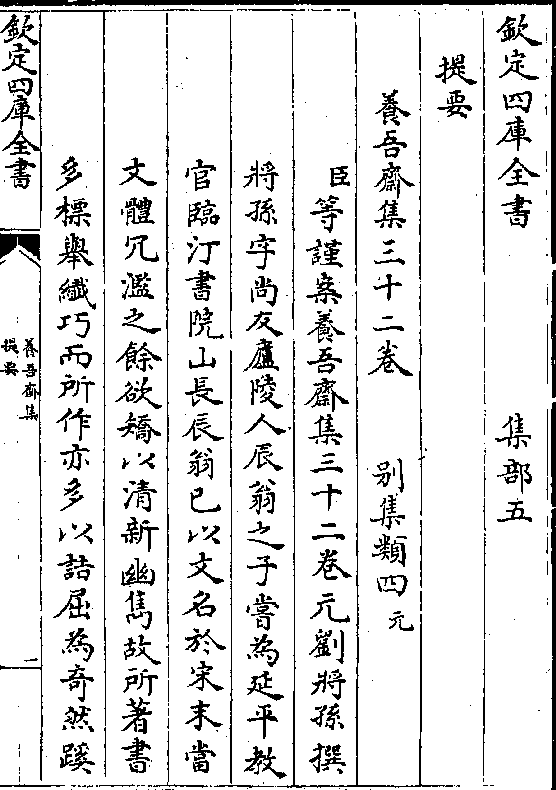 欽定四庫全書　集部五
提要
養吾齋集三十二卷　别集類四元
臣等謹案養吾齋集三十二卷元劉將孫撰
將孫字尚友廬陵人辰翁之子嘗為延平教
官臨汀書院山長辰翁已以文名於宋末當
文體冗濫之餘欲矯以清新幽雋故所著書
多標舉纖巧而所作亦多以詰屈為奇然蹊
欽定四庫全書
養吾齋集
提要
一